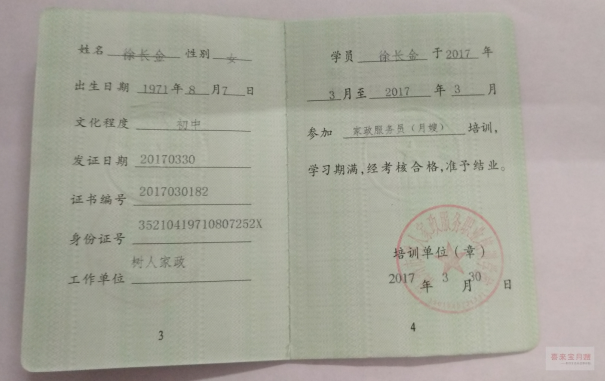 姓名 徐长金 性别 女
出生日期 1971 年 8 月 7 日
文化程度 初中
发证日期 20170330
证书编号 2017030182
身份证号 35210419710807252X
工作单位 树人家政
3
学员 徐长金 于 2017 年
3 月至 2017 年 3 月
参加 家政服务员（月嫂） 培训，
学习期满，经考核合格，准予结业。
培训单位（章）
2017 年 3 月 30 日
4